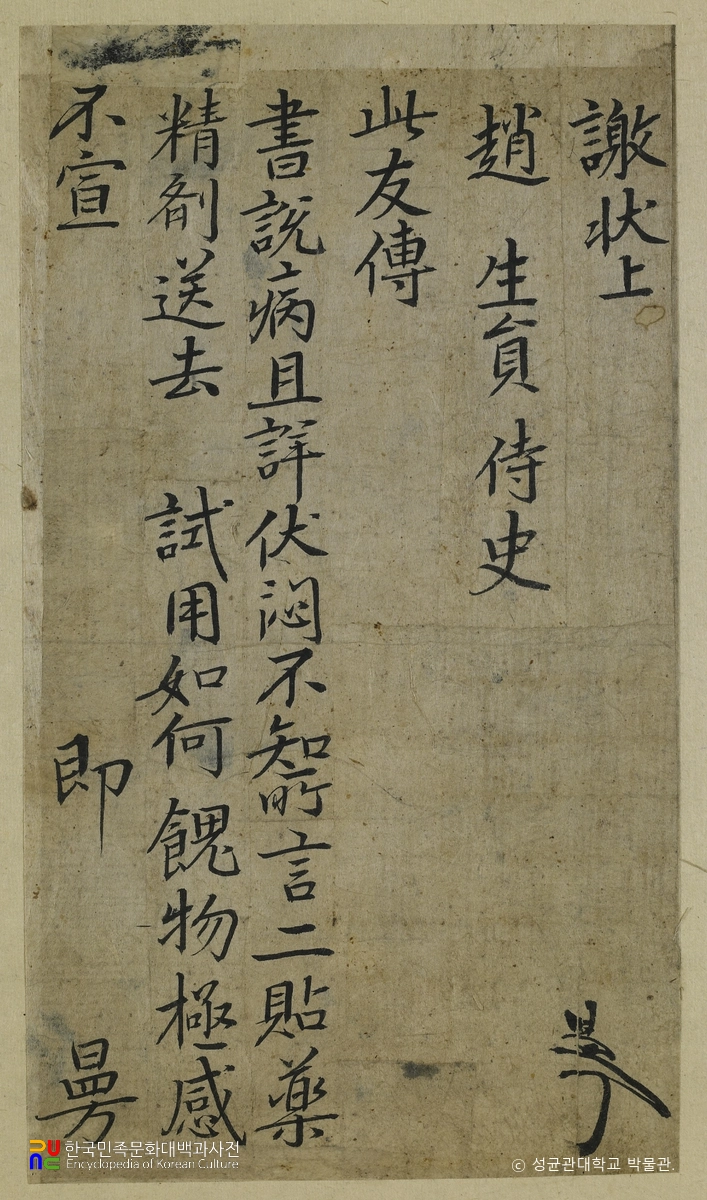 謝状上
趙 生員 侍史
此友傳
書說病且詳伏悶不知所言二貼藥
精剤送去 試用如何 餽物極感
不宣 即
한국민족문화대백과사전
Encyclopedia of Korean Culture
ⓒ 성균관대학교 박물관.